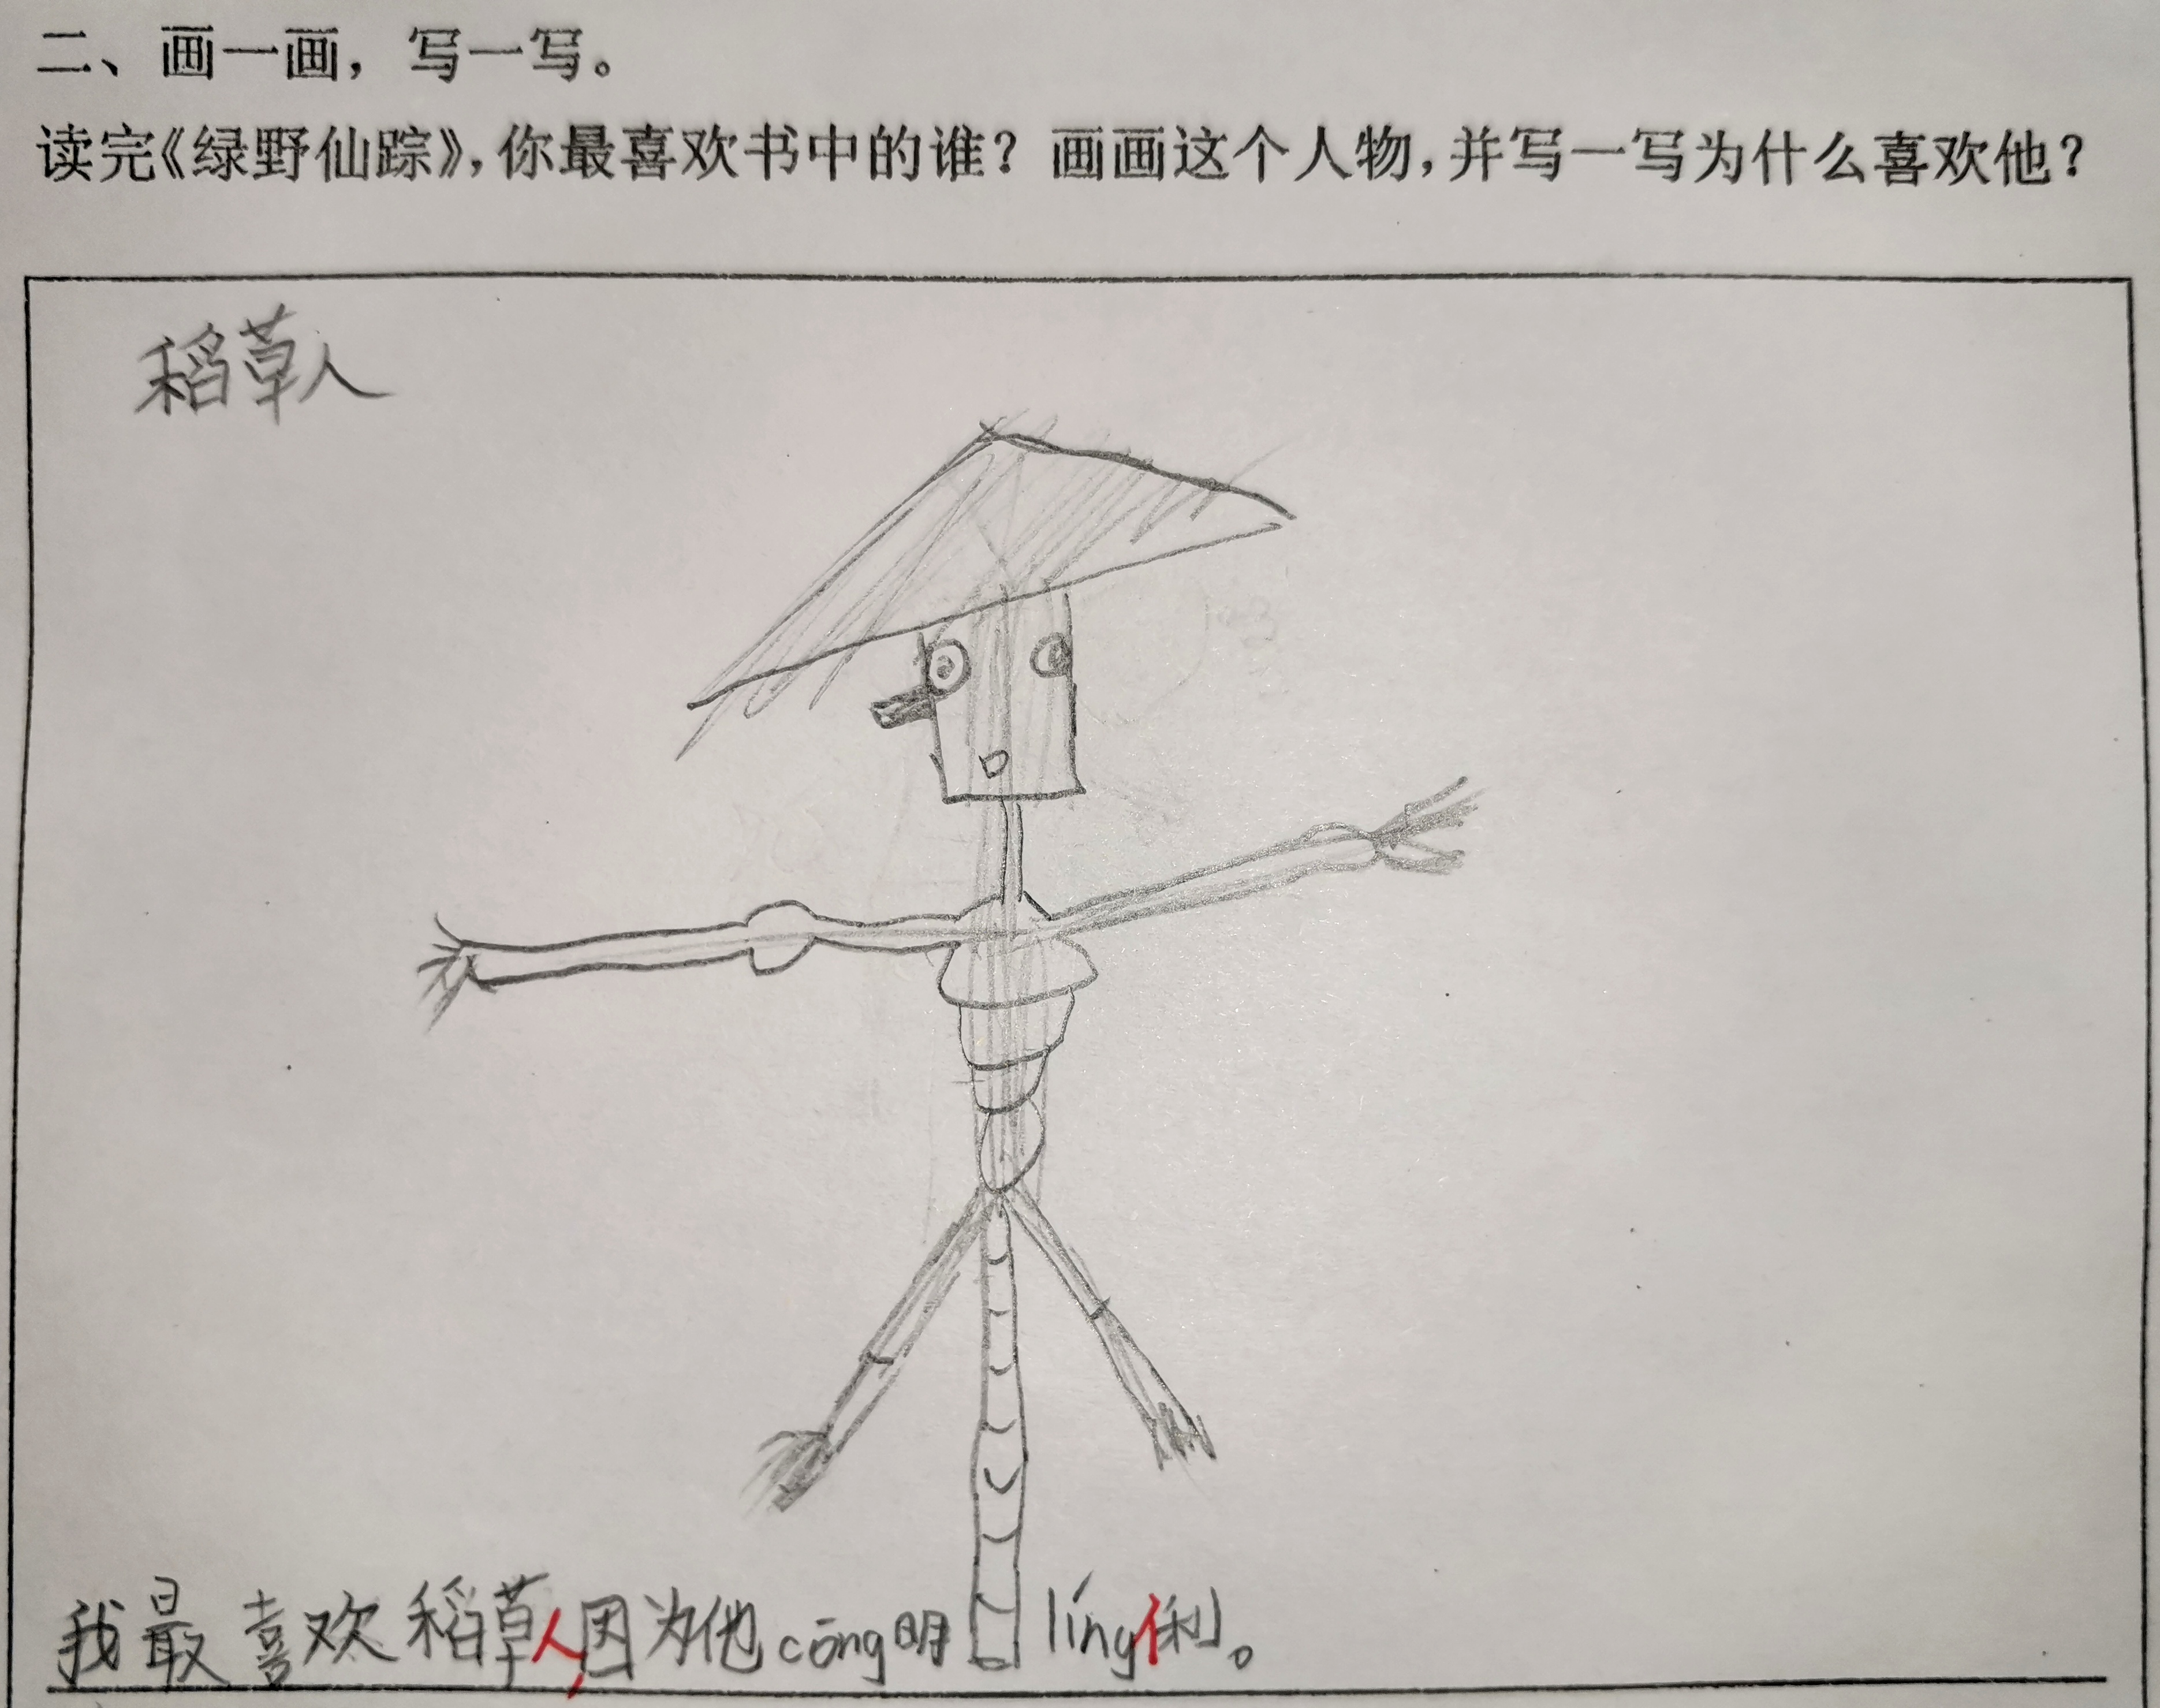 二、画一画，写一写。
读完《绿野仙踪》，你最喜欢书中的谁？画画这个人物，并写一写为什么喜欢他？
稻草人
我最喜欢稻草人，因为他cōng明líng俐。